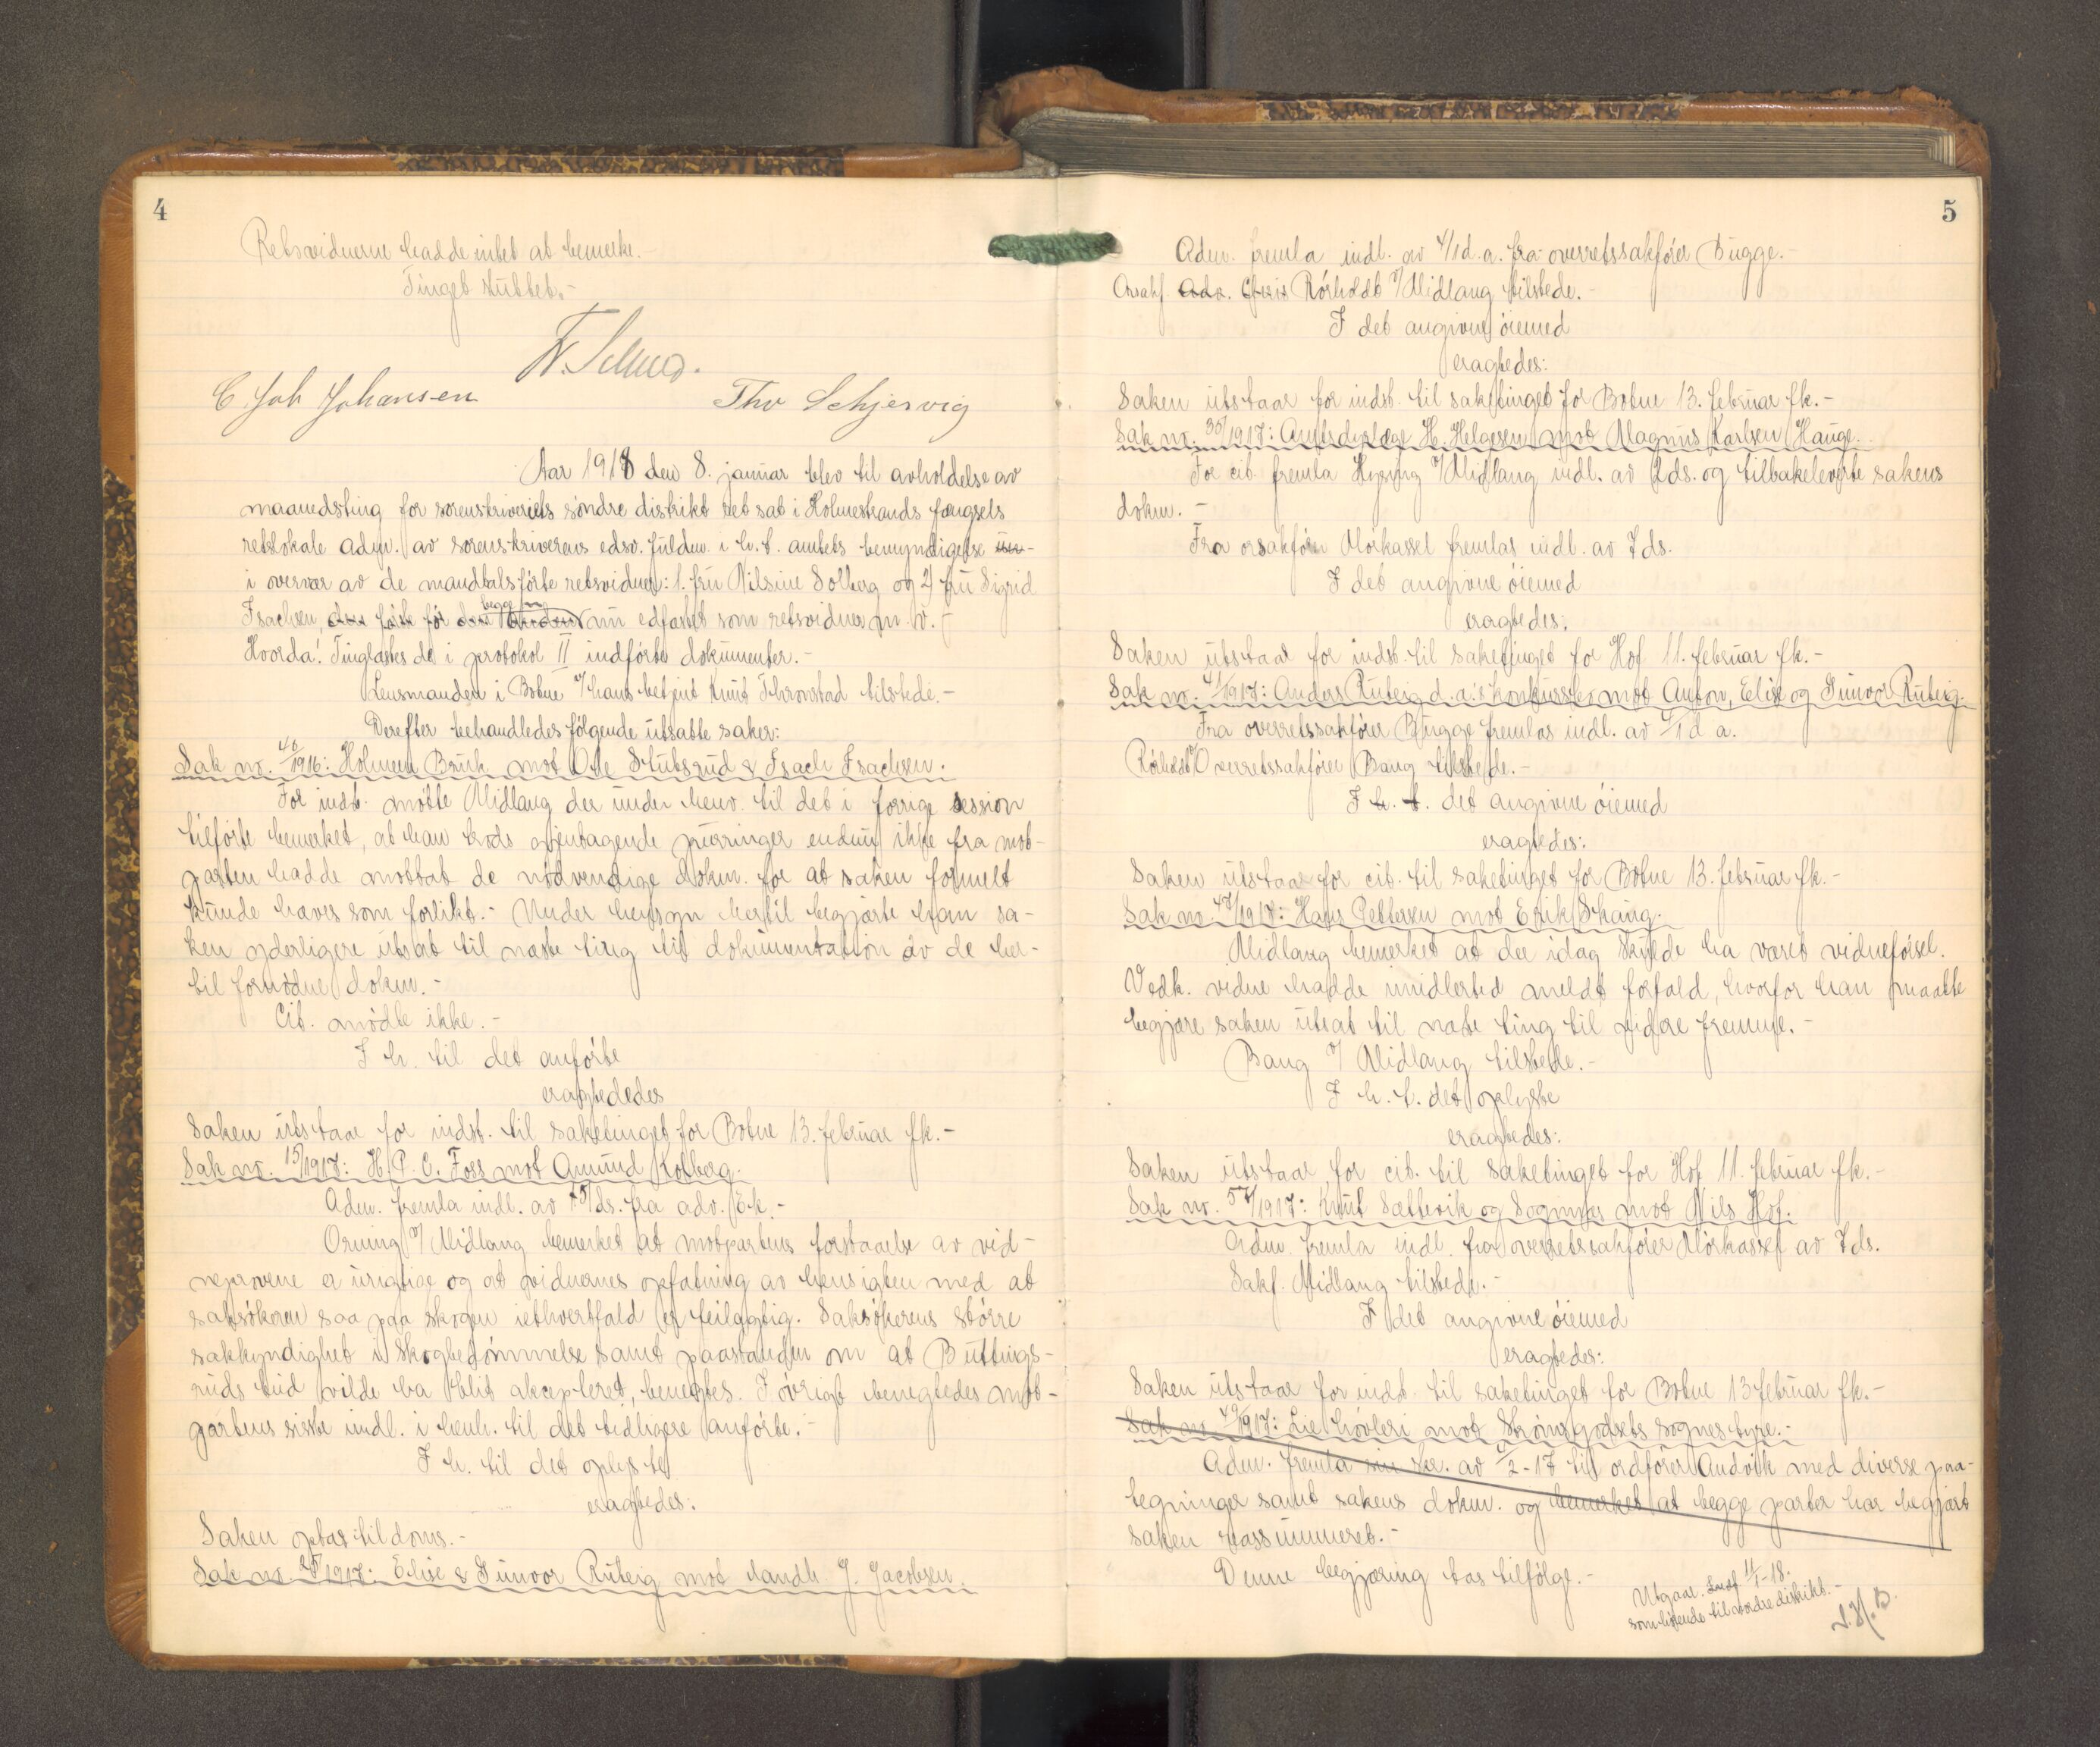 4
Retsvidnerne hadde intet at bemerke.-
Tinget sluttet.-
C Joh Johansen
Thv Schjervig
Aar 1918 den 8. januar blev til avholdelse av
maanedsting for sorenskriveriets søndre distrikt ret sat i Holmestrands fængsels
retslokale adm. av sorenskriverens edsv. fuldm. i h. t. amtets bemyndigelse
i overvær av de mandtalsførte retsvidner: 1. fru Nilsine Solberg og 2) fru Sigrid
Isachsen, den første før den anden begge nu edfæstet som retsvidner m. v. -
Hvorda! Tinglæstes de i protokol II indførte dokumenter.-
Lensmanden i Botne v/ hans betjent Knut Thronstad tilstede.-
Derefter behandledes følgende utsatte saker:
Sak nr. 46/1916: Holmen Bruk mot Ole Stubsrud & Isach Isachsen.
For indst. møtte Midlang der under henv. til det i forrige session
tilførte bemerket, at han trods gjentagende purringer endnu ikke fra mot-
parten hadde mottat de nødvendige dokum. for at saken formelt
kunde hæves som forlikt.- Under hensyn hertil begjærte han sa-
ken yderligere utsat til næste ting til dokumentation av de her-
til fornødne dokum.-
Cit. mødte ikke.-
I h. til det anførte
eragtededes
Saken utstaar for indst. til saketinget for Botne 13. februar fk.-
Sak nr. 15/1917: H. P. C. Foss mot Amund Kolberg.
Adm. fremla indl. av ds. fra adv. Ek.-
Orning v/ Midlang bemerket at motpartens forstaaelse av vid-
neprovene er urigtige og at vidnernes opfatning av hensigten med at
saksøkeren saa paa skogen iethvertfald er feilagtig. Saksøkerens større
sakkyndighet i skogbedømmelse samt paastanden om at Buttings-
ruds bud vilde ha blit akcepteret, benegtes. I øvrigt benegtedes mot-
partens siste indl. i henh. til det tidligere anførte.-
I h. til det oplyste
eragtedes:
Saken optas til doms.-
Sak nr. 1917: Elise & Gunvor Ruteig mot landh. J. Jacobsen.
5
Adm. fremla indl. av 4/1 d.a. fra overretssakfører Bugge.-
Orsakf. Adv. Rørholdt v/ Midlang tilstede.-
I det angivne øiemed
eragtedes:
Saken utstaar for indst. til saketinget for Botne 13. februar fk.-
Sak nr. 35/1917: Amtsdyrlæge H. Helgesen mot Magnus Karlsen Hauge.
For cit. fremla Hysing v/ Midlang indl. av ds. og tilbakeleverte sakens
dokum.-
Fra orsakfører Mørkassel fremlas indl. av 7 ds.
I det angivne øiemed
eragtedes:
Saken utstaar for indst. til saketinget for Hof 11. februar fk.-
Sak nr. 41/1917: Anders Ruteig d. a.'s konkursbo mot Anton, Elise og Gunvor Ruteig.
Fra overretssakfører Bugge fremlas indl. av 4/1 d. a.
Rørholdt v/ Overretssakfører Bang tilstede.-
I h. t. det angivne øiemed
eragtedes:
Saken utstaar for cit. til saketinget for Botne 13. februar fk.-
Sak nr. 47/1917: Hans Pettersen mot Erik Skaug.
Midlang bemerket at der idag skulde ha været vidneførsel.
Vedk. vidne hadde imidlertid meldt forfald, hvorfor han maatte
begjære saken utsat til næste ting til videre fremme.-
Bang v/ Midlang tilstede.-
I h. t. det oplyste
eragtedes:
Saken utstaar for cit. til saketinget for Hof 11. februar fk.-
Sak nr. 57/1917: Knut Sættevik og Sognnæs mot Nils Hof.
Adm. fremla indl. fra overretssakfører Mørkassel av 7 ds.
Sakf. Midlang tilstede.-
I det angivne øiemed
eragtedes:
Saken utstaar for indst. til saketinget for Botne 13 februar fk.-
Sak nr. 49/1917: Lie høvleri mot Strømsgodsets sognestyre.-
Adm. fremla sin skr. av /2-17 til ordfører Andvik med diverse paa-
tegninger samt sakens dokum. og bemerket at begge parter har begjært
saken reassummeret.-
Denne begjæring tas tilfølge.-
Utgaar. 11/1-18.
som hørende til nordre distrikt.-